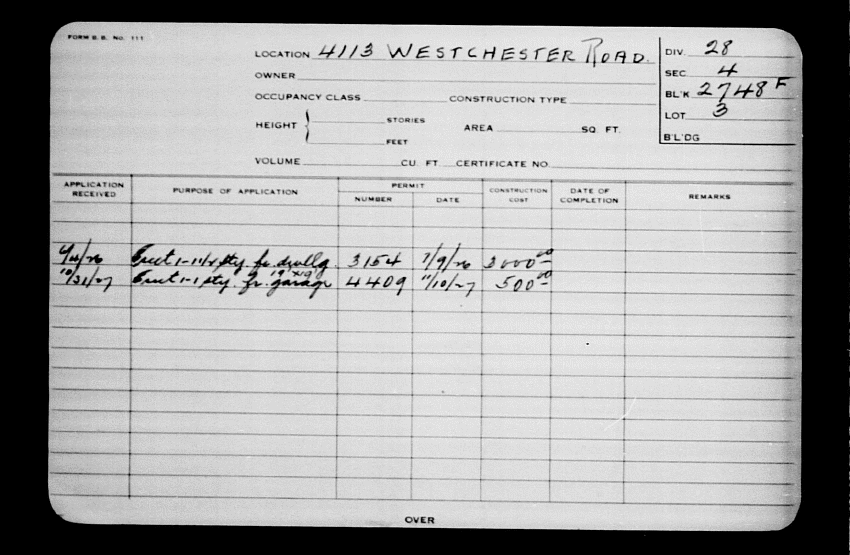 FORM B. B. No. 111
LOCATION 4113 WESTCHESTER ROAD.
DIV. 28
OWNER
SEC 4
OCCUPANCY CLASS CONSTRUCTION TYPE
BL'K 2748 F
HEIGHT { STORIES AREA SQ. FT.
LOT 3
FEET
B'L'DG
VOLUME CU. FT. CERTIFICATE NO.
APPLICATION RECEIVED PURPOSE OF APPLICATION PERMIT NUMBER DATE CONSTRUCTION COST DATE OF COMPLETION REMARKS
Erect 1-1 1/2 sty. fr. dwellg 3154 7/9/26 3000.00
10/31/27 Erect 1-1 sty. fr. 19'x19' garage 4409 11/10/27 500.00
OVER